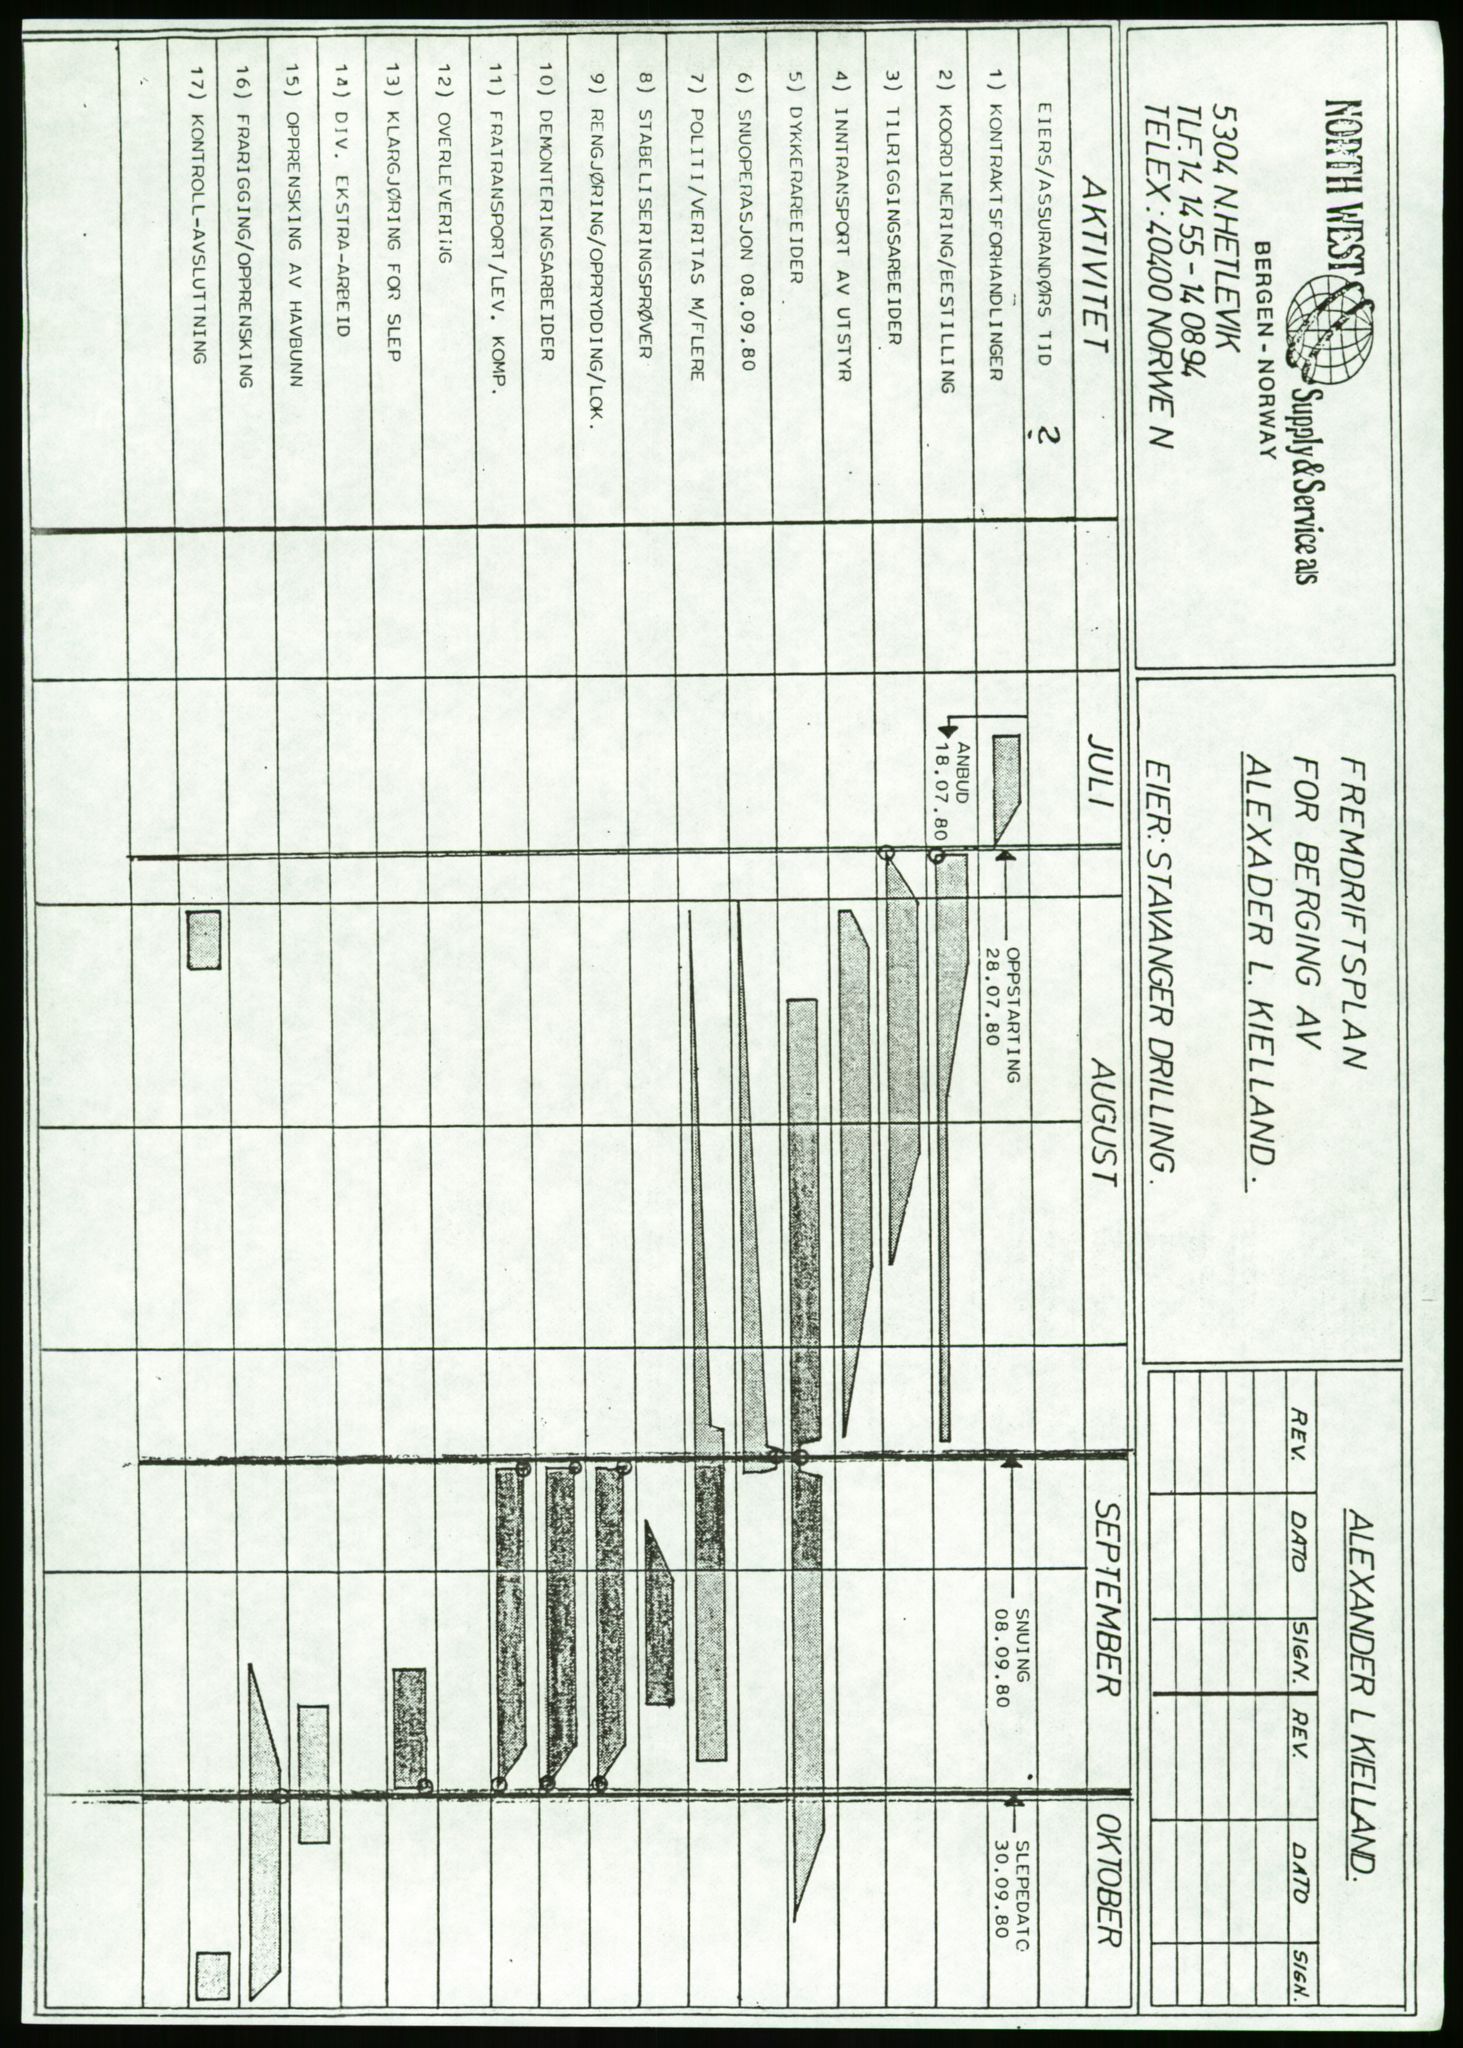 NORTH WEST Supply & Service a/s
BERGEN - NORWAY
5304 N.HETLEVIK
TLF. 14 14 55 - 14 08 94
TELEX : 40400 NORWE N
FREMDRIFTSPLAN
FOR BERGING AV
ALEXADER L. KIELLAND.
EIER: STAVANGER DRILLING.
ALEXANDER L KIELLAND.
REV. DATO SIGN. REV. DATO SIGN.
AKTIVITET JULI AUGUST SEPTEMBER OKTOBER
EIERS/ASSURANDØRS TID ?
1) KONTRAKTSFORHANDLINGER
OPPSTARTING
28.07.80
SNUING
08.09.80
SLEPEDATO
30.09.80
2) KOORDINERING/BESTILLING
ANBUD
18.07.80
3) TILRIGGINGSARBEIDER
4) INNTRANSPORT AV UTSTYR
5) DYKKERARBEIDER
6) SNUOPERASJON 08.09.80
7) POLITI/VERITAS M/FLERE
8) STABELISERINGSPRØVER
9) RENGJØRING/OPPRYDDING/LOK.
10) DEMONTERINGSARBEIDER
11) FRATRANSPORT/LEV. KOMP.
12) OVERLEVERING
13) KLARGJØRING FOR SLEP
14) DIV. EKSTRA-ARBEID
15) OPPRENSKING AV HAVBUNN
16) FRARIGGING/OPPRENSKING
17) KONTROLL-AVSLUTTNING